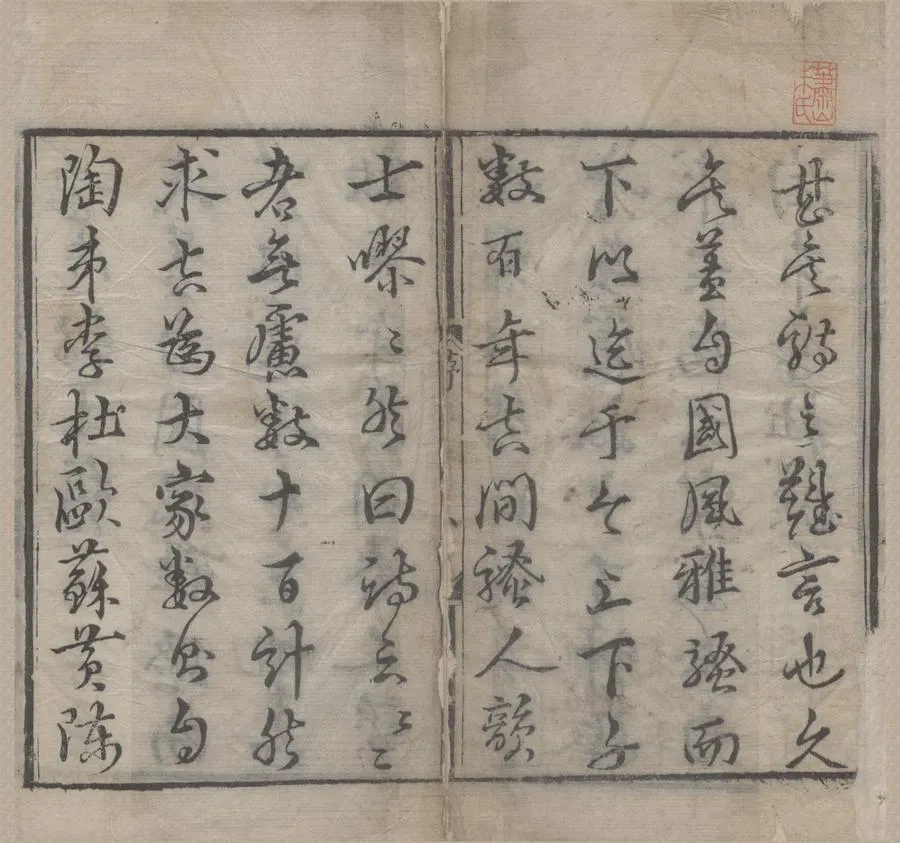 甚矣詩之難言也久
矣蓋自國風雅騷而
下以迄于今上下千
數百年其間騷人韻
士嘐〻然曰詩云〻
者無慮數十百計然
求其為大家數則自
陶韋李杜歐蘇黃陳
序